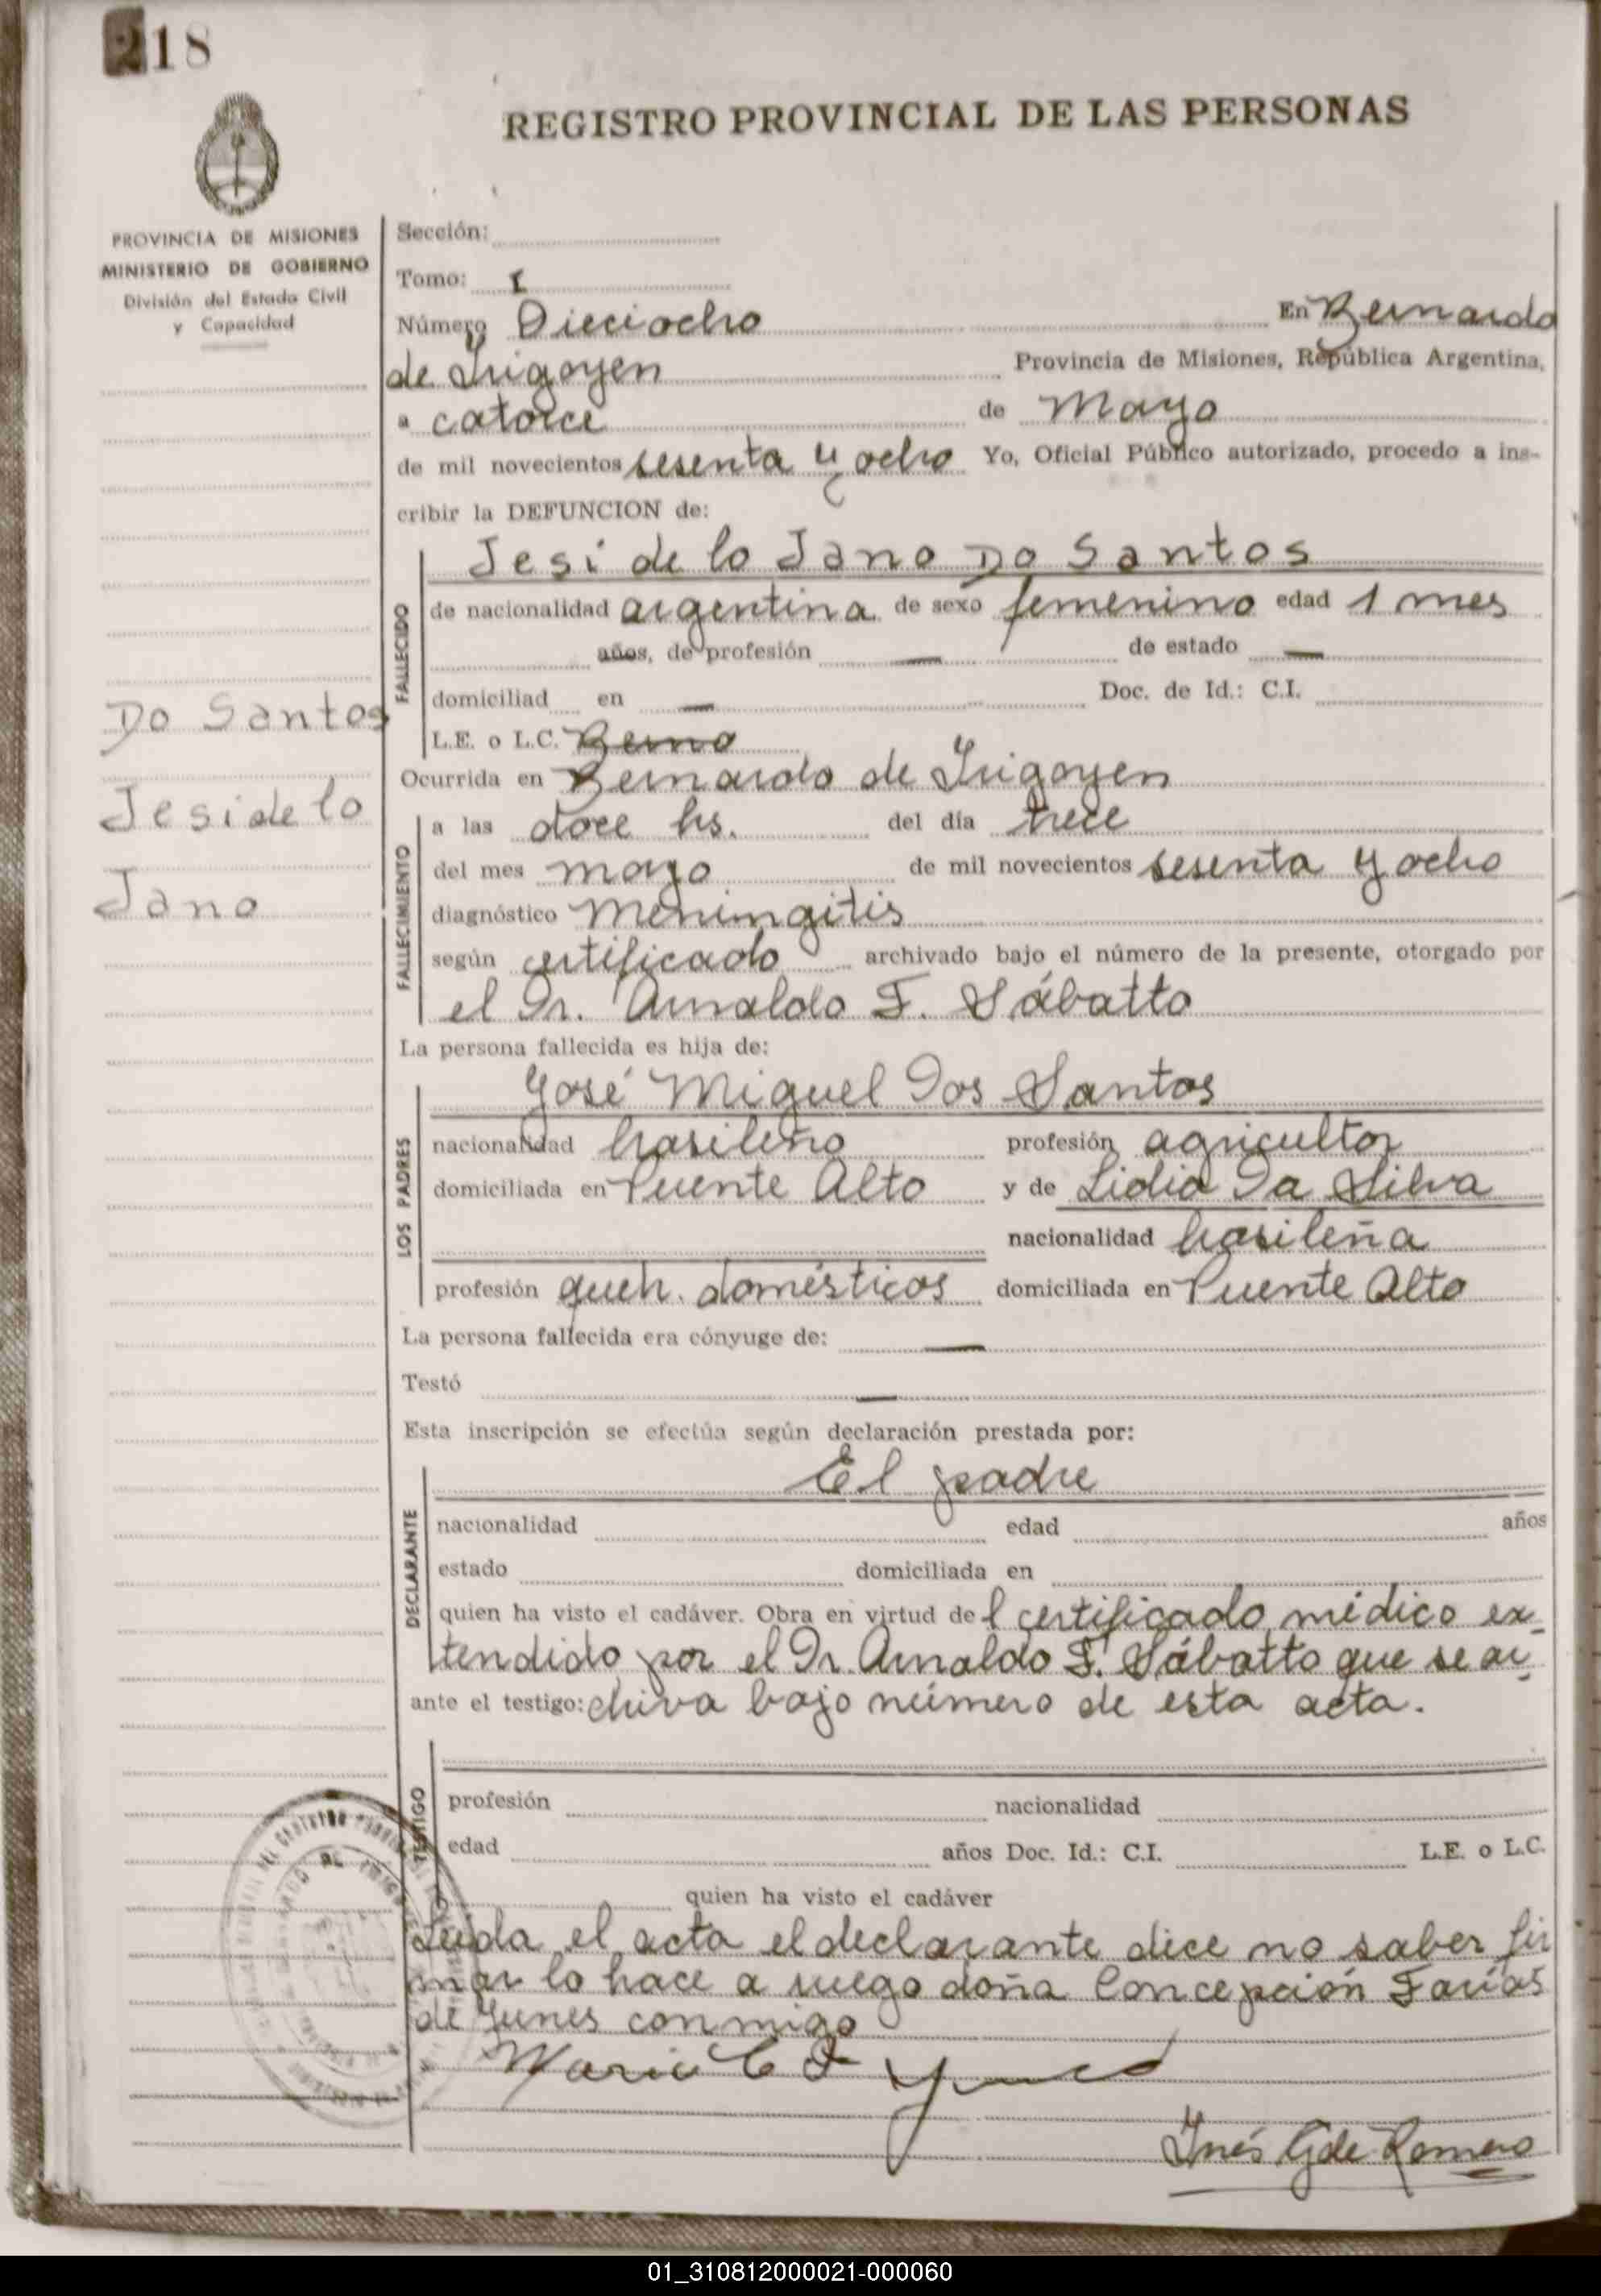 218
REGISTRO PROVINCIAL DE LAS PERSONAS
PROVINCIA DE MISIONES
MINISTERIO DE GOBIERNO
División del Estado Civil
y Capacidad
Do Santos
Jesi de lo
Jano
Sección:
Tomo: I
Número Dieciocho En Bernardo
de Irigoyen Provincia de Misiones, República Argentina,
a catorce de Mayo
de mil novecientos sesenta y ocho Yo, Oficial Público autorizado, procedo a ins-
cribir la DEFUNCION de:
FALLECIDO
Jesi de lo Jano Do Santos
de nacionalidad argentina de sexo femenino edad 1 mes
años, de profesión — de estado —
domiciliad en — Doc. de Id.: C.I.
L.E. o L.C. Berna
Ocurrida en Bernardo de Irigoyen
FALLECIMIENTO
a las doce hs. del día trece
del mes mayo de mil novecientos sesenta y ocho
diagnóstico Meningitis
según certificado archivado bajo el número de la presente, otorgado por
el Dr. Arnaldo F. Sábatto
La persona fallecida es hija de:
LOS PADRES
José Miguel Dos Santos
nacionalidad brasileño profesión agricultor
domiciliada en Puente Alto y de Lidia Da Silva
nacionalidad brasileña
profesión queh. domésticos domiciliada en Puente Alto
La persona fallecida era cónyuge de: —
Testó —
Esta inscripción se efectúa según declaración prestada por:
DECLARANTE
El padre
nacionalidad edad años
estado domiciliada en
quien ha visto el cadáver. Obra en virtud del certificado médico ex-
tendido por el Dr. Arnaldo F. Sábatto que se ar-
ante el testigo: chiva bajo número de esta acta.
TESTIGO
profesión nacionalidad
edad años Doc. Id.: C.I. L.E. o L.C.
quien ha visto el cadáver
Leída el acta el declarante dice no saber fir
mar lo hace a ruego doña Concepción Farías
de Yunes conmigo
Inés G de Romero
01_310812000021-000060